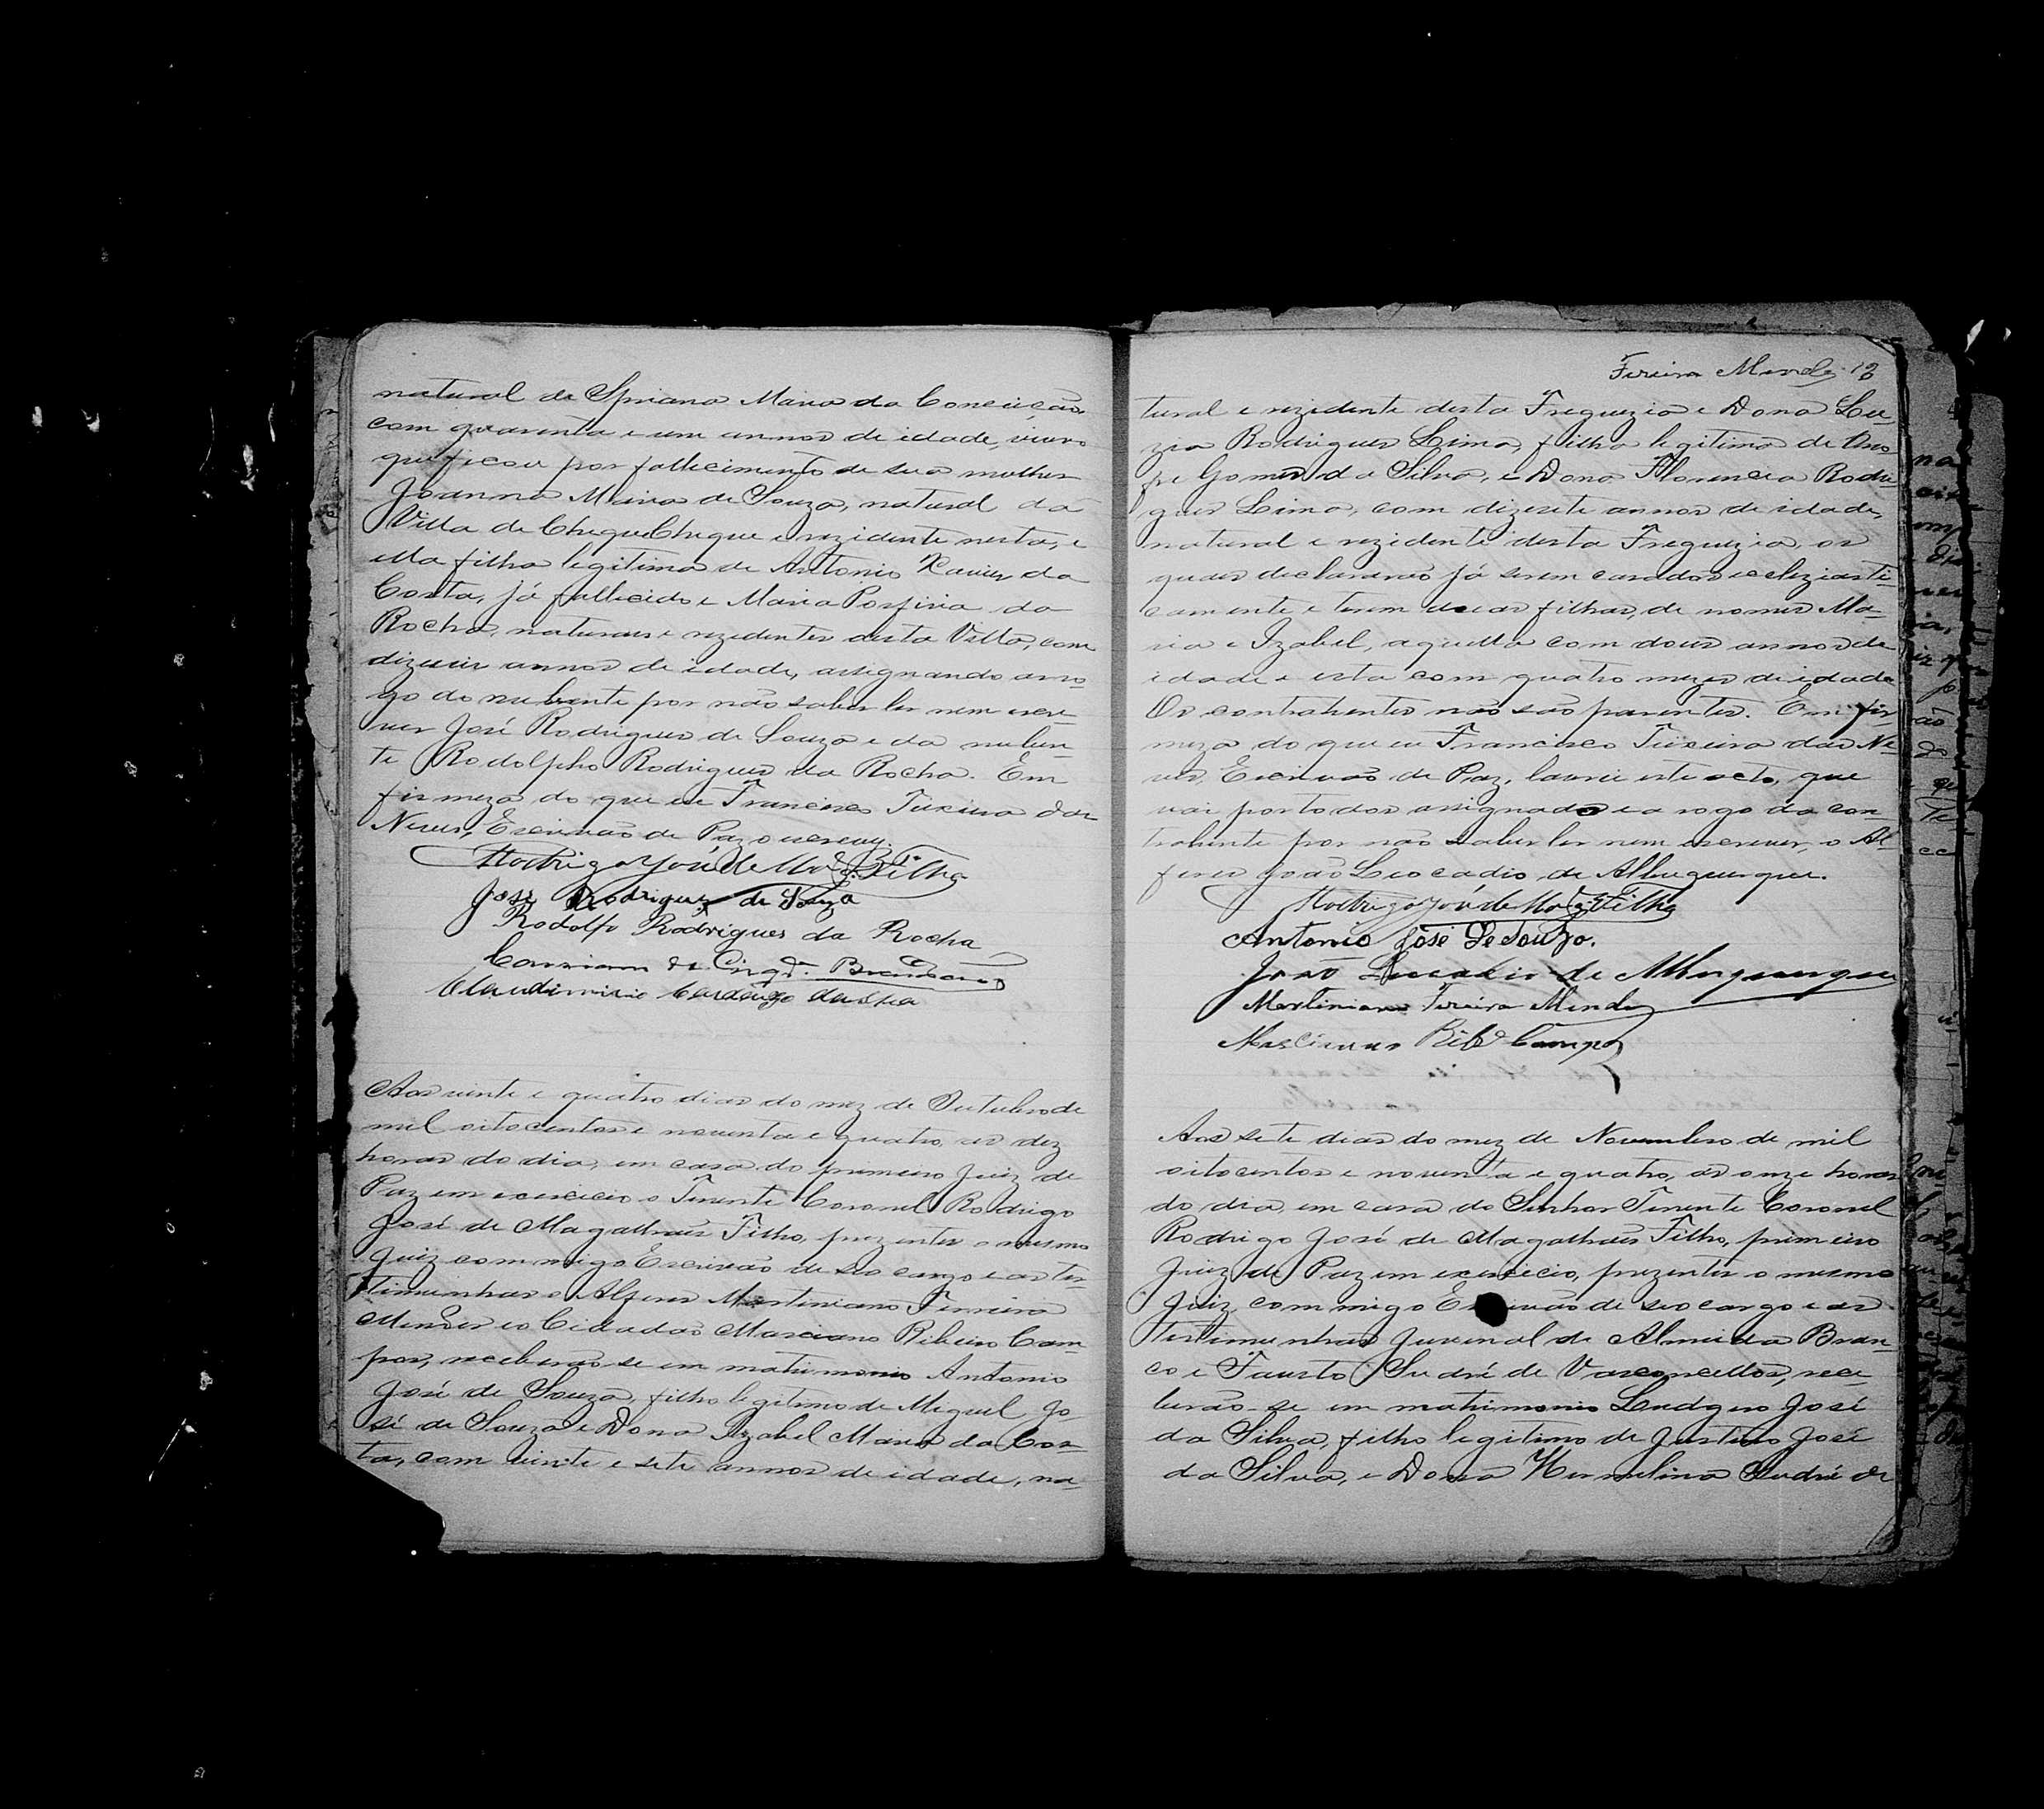 natural de Spriana Maria da Conceição
com quarenta e um annos de idade, viuvo
que ficou por fallecimento de sua mulher
Joanna Maria de Souza, natural da
Villa de Chique Chique e rezidente nesta, e
ella filha legitima de Antonio Xavier da
Costa, já fallecido e Maria Porfiria da
Rocha, naturaes e rezidentes desta Villa, com
dizeseis annos de idade, assignando a ro-
go do nubente por não saber ler nem escre-
ver José Rodrigues de Souza e da nuben-
te Rodolpho Rodrigues da Rocha. Em
firmeza do que eu Francisco Teixeira das
Neves, Escrivão de Paz o escrevy.
Rodrigo José de Mag.es Filho
José Rodrigues de Souza
Rodolfo Rodrigues da Rocha
Claudimirio Cardozo da Silva
Aos vinte e quatro dias do mez de Outubro de
mil oitocentos e noventa e quatro, as dez
horas do dia, em casa do primeiro Juiz de
Paz em exercicio o Tenente Coronel Rodrigo
José de Magalhães Filho, prezentes o mesmo
Juiz commigo Escrivão de seo cargo e as tes-
timunhas o Alferes Martiniano Ferreira
Mendes e o Cidadão Marciano Ribeiro Cam-
pos, receberão se em matrimonio Antonio
José de Souza, filho legitimo de Miguel Jo-
sé de Souza e Dona Izabel Maria da Cos-
ta, com vinte e sete annos de idade, na-
Fereira Mendes 12
tural e rezidente desta Freguezia e Dona Lu-
zia Rodrigues Lima, filha legitima de Ono-
fre Gomes da Silva, e Dona Florencia Rodri-
gues Lima, com dizesete annos de idade,
natural e rezidente desta Freguezia, os
quaes declararão já serem casados ecleziasti-
camente e terem duas filhas, de nomes Ma-
ria e Izabel, aquella com dous annos de
idade e esta com quatro mezes de idade
Os contrahentes não são parentes. Em fir-
meza do que eu Francisco Teixeira das Ne-
ves, Escrivão de Paz, lavrei este acto, que
vai por todos assignado e a rogo da con-
trahente por não saber ler nem escrever, o Al-
feres João Leocadio de Albuquerque.
Rodrigo José de Mag.es Filho
Antonio José de Souza.
João Leocadio de Albuquerque
Martiniano Fereira Mendes
Marciano Rib.o Campos
Aos sete dias do mez de Novembro de mil
oitocentos e noventa e quatro, as onze horas
do dia, em casa do Senhor Tenente Coronel
Rodrigo José de Magalhães Filho, primeiro
Juiz de Paz em exercicio, prezentes o mesmo
Juiz, commigo Escrivão de seo cargo e as
testimunhas Juvenal de Almeida Bran-
co e Fausto Sudré de Vasconcellos, rece-
berão-se em matrimonio Lindgero José
da Silva, filho legitimo de Justino José
da Silva, e Dona Hermelina Sudré de